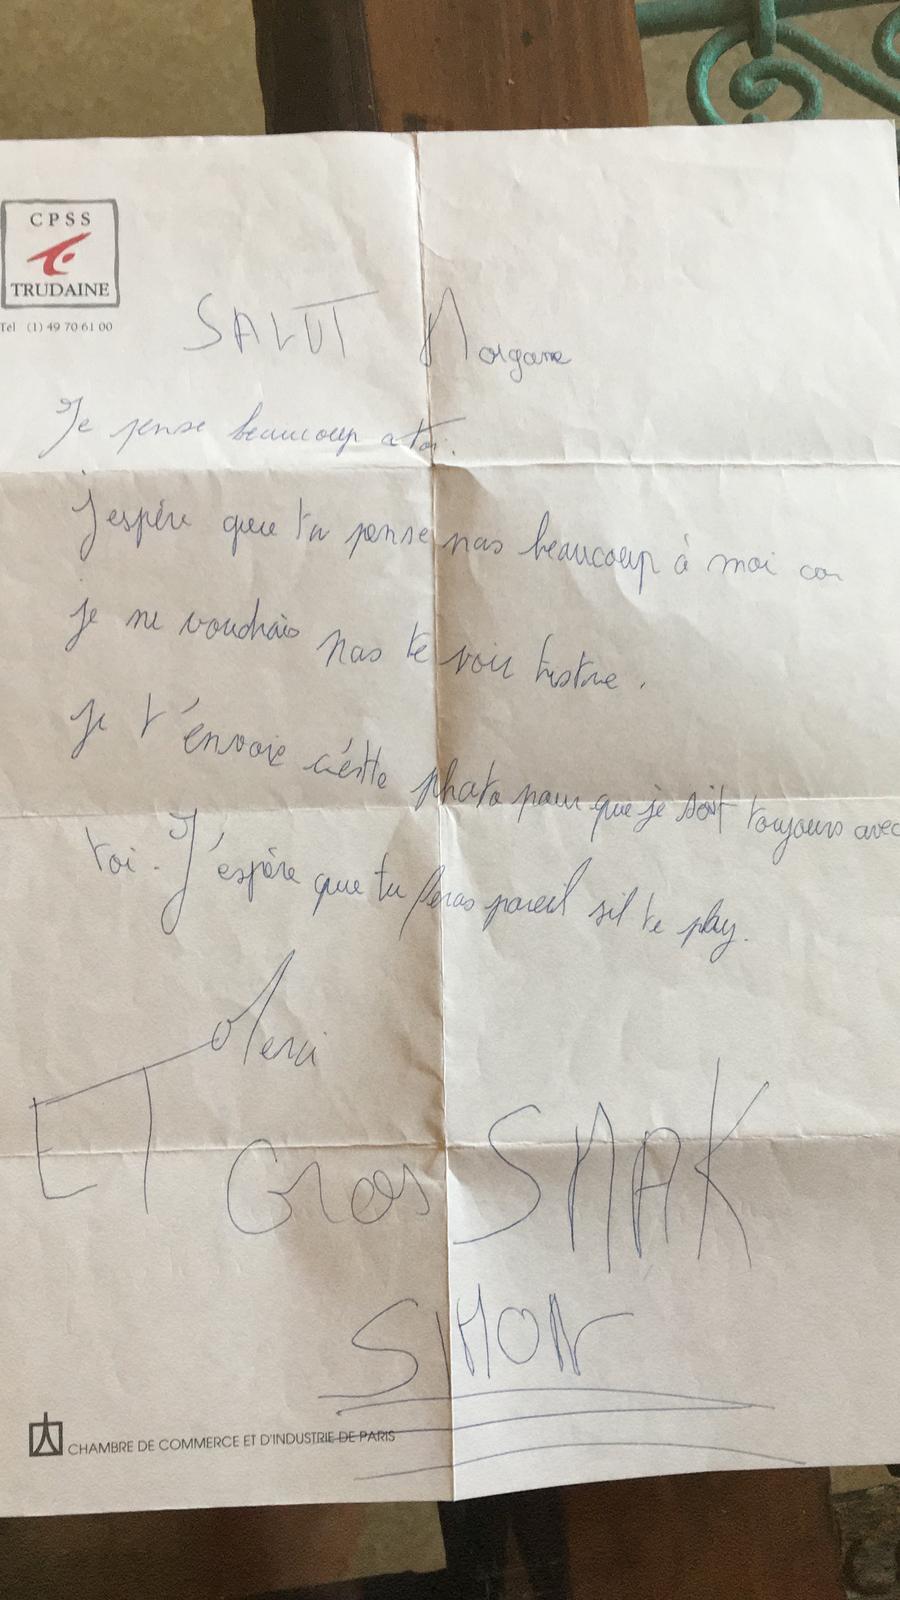 CPSS
TRUDAINE
Tel (1) 49 70 61 00
SALUT Morgane
Je pense beaucoup a toi.
J'espére que tu pense pas beaucoup à moi car
je ne voudrais pas te voir triste.
je t'envoie c'éstte photo pour que je soit toujours avec
toi. J'espère que tu feras pareil sil te play.
Merci
ET Gros SMAK
SIMON
CHAMBRE DE COMMERCE ET D'INDUSTRIE DE PARIS